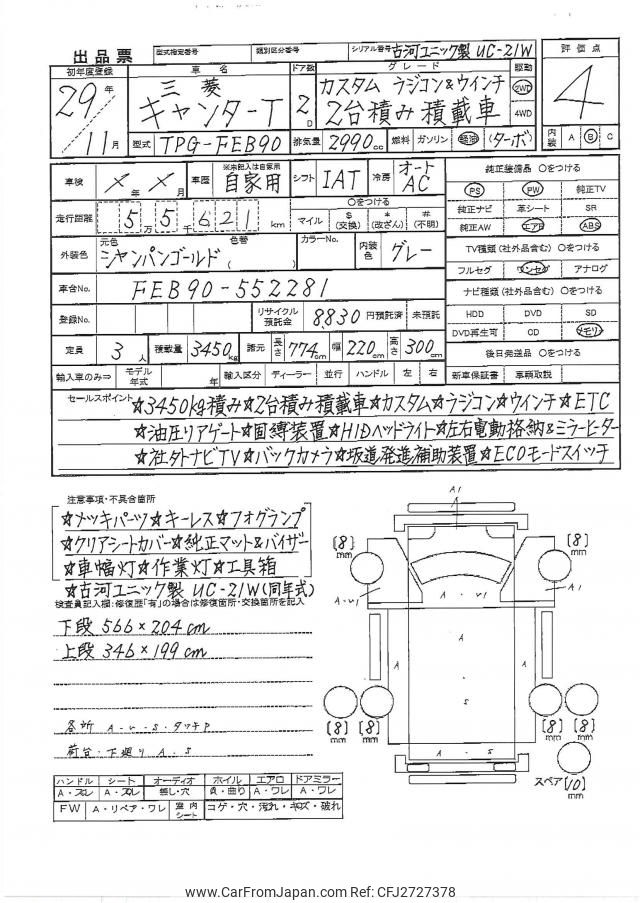 出品票
型式指定番号
類別区分番号
シリアル番号 古河ユニック製 UC-21W
評価点
初年度登録
車名
ドア数
グレード
駆動
29年
三菱
カスタム ラジコン&ウインチ
2WD
4
キャンターT
2D
2台積み積載車
4WD
11月
型式 TPG-FEB90
排気量 2990cc
燃料 ガソリン 軽油 (ターボ)
内装 A B C
車検 × 年 × 月
車歴
※未記入は自家用
自家用
シフト IAT
冷房 オートAC
純正装備品 ○をつける
PS PW 純正TV
走行距離 5万5千621km
○をつける
マイル $(交換) *(改ざん) #(不明)
純正ナビ 革シート SR
純正AW エアB ABS
外装色
元色
シャンパンゴールド
色替
( )
カラーNo.
内装色 グレー
TV種類(社外品含む) ○をつける
フルセグ ワンセグ アナログ
車台No. FEB90-552281
ナビ種類(社外品含む) ○をつける
登録No.
リサイクル預託金 8830 円預託済 未預託
HDD DVD SD
DVD再生可 CD メモリ
定員 3人
積載量 3450kg
諸元 長さ 774cm 幅 220cm 高さ 300cm
後日発送品 ○をつける
輸入車のみ⇒
モデル年式 年
輸入区分 ディーラー 並行
ハンドル 左 右
新車保証書 車輌取説
セールスポイント
☆3450kg積み☆2台積み積載車☆カスタム☆ラジコン☆ウインチ☆ETC
☆油圧リアゲート☆固縛装置☆HIDヘッドライト☆左右電動格納&ミラーヒーター
☆社外ナビTV☆バックカメラ☆坂道発進補助装置☆ECOモードスイッチ
注意事項・不具合箇所
☆メッキパーツ☆キーレス☆フォグランプ
☆クリアシートカバー☆純正マット&バイザー
☆車幅灯☆作業灯☆工具箱
☆古河ユニック製 UC-21W(同年式)
検査員記入欄:修復歴「有」の場合は修復箇所・交換箇所を記入
下段 566×204cm
上段 346×199cm
各所 A・U・S・タッチP
荷台・下廻り A.S
A1
[8]mm
[8]mm
A・U1
A・U1
A
A
A
A
S
A・S
[8]mm
[8]mm
[8]mm
[8]mm
スペア[10]mm
ハンドル シート オーディオ ホイル エアロ ドアミラー
A・スレ A・スレ 無し・穴 A・曲り A・ワレ A・ワレ
FW A・リペア・ワレ 室内シート コゲ・穴・汚れ・キズ・破れ
www.CarFromJapan.com Ref: CFJ2727378